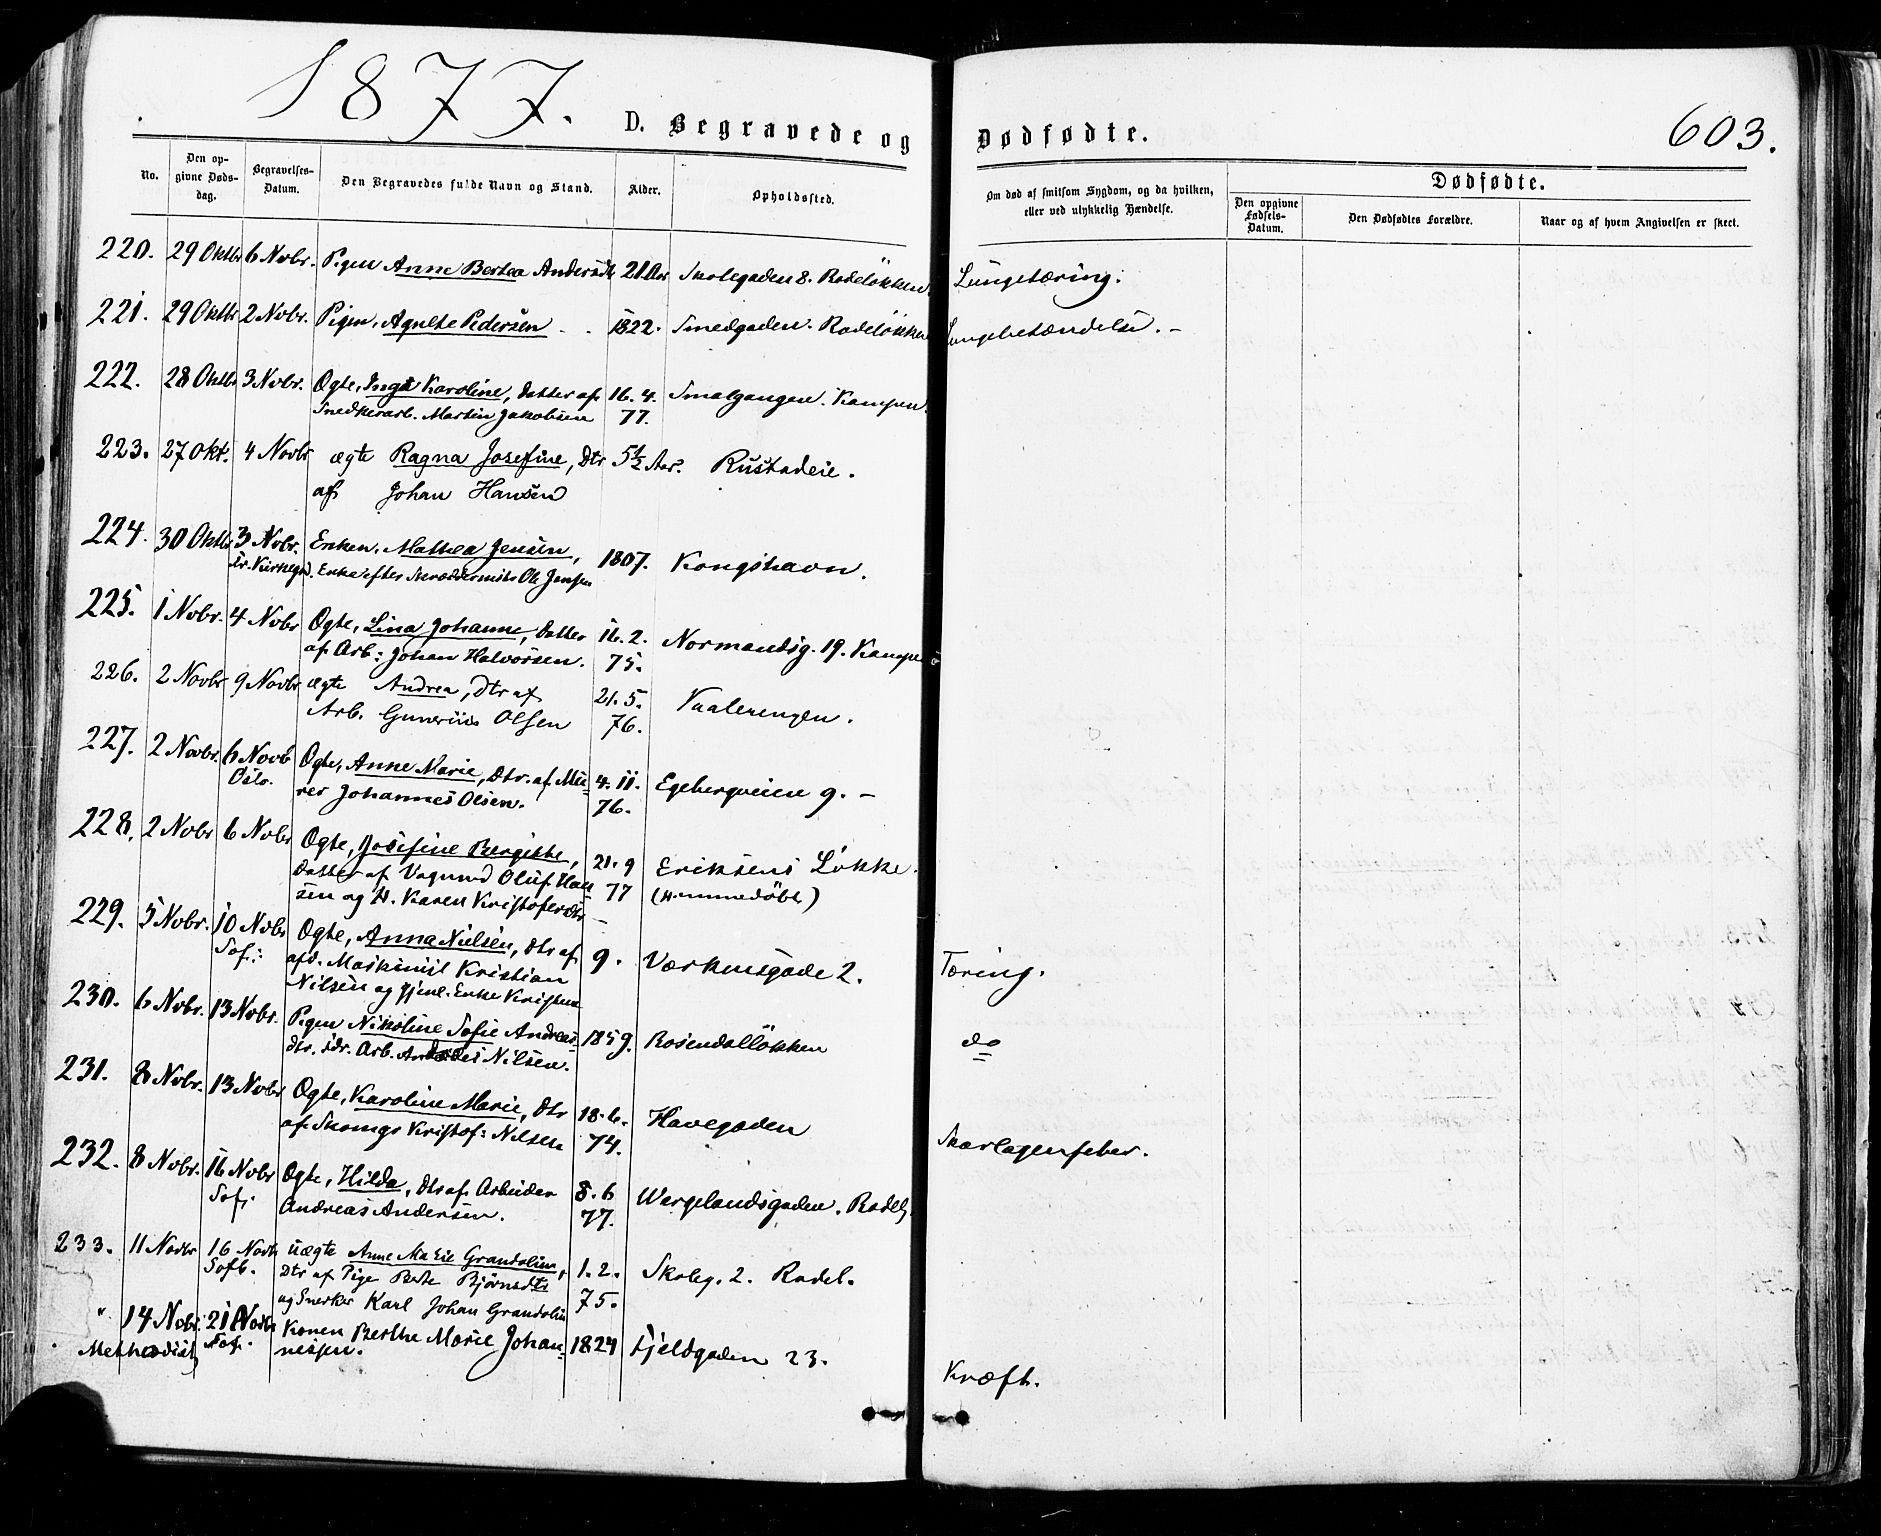 1877.
D. Begravede og Dødfødte.
603.
No.
Den op-
givne Døds-
dag.
Begravelses-
Datum.
Den Begravedes fulde Navn og Stand.
Alder.
Opholdssted.
Om død af smitsom Sygdom, og da hvilken,
eller ved ulykkelig Hændelse.
Dødfødte.
Den opgivne
Fødsels-
Datum.
Den Dødfødtes Forældre.
Naar og af hvem Angivelsen er skeet.
220. 29 Oktbr 6 Novbr. Pigen Anne Bertea Andersdt 21 Aar Skolegaden 8. Rodeløkken. Lungetæring.
221. 29 Oktbr 2 Novbr. Pigen, Agnethe Pedersen 1822. Smedgaden. Rodeløkken Lungebetændelse. –
222. 28 Oktbr 3 Novbr. Ægte, Inga Karoline, Datter af 16. 4. Smalgangen. Kampen.
Snedkerarb. Martin Jakobsen 77.
223. 27 Okt. 4 Novbr ægte Ragna Josefine, Dtr 5½ Aar. Rustadeie.
af Johan Hansen
224. 30 Oktbr 3 Novbr. Enken, Mathea Jensen, 1807. Kongshavn.
Kirkegd. Enke efter Skræddermstr Ole Jensen
225. 1 Novbr. 4 Novbr Ægte, Lina Johanne, Datter 16. 2. Normandsg. 19. Kampen
af Arb: Johan Halvorsen. 75.
226. 2 Novbr 9 Novbr ægte Andrea, Dtr af 21. 5. Vaalerengen.
Arb. Gunerius Olsen 76.
227. 2 Novbr. 6 Novb Ægte, Anne Marie, Dtr. af Mu- 4. 11. Egebergveien 9. –
Oslo. rer Johannes Olsen. 76.
228. 2 Novbr 6 Novbr Ægte, Josefine Bergitte, 21. 9 Eriksens Løkke.
Datter af Vognmd Oluf Han 77 (Hjemmedøbt)
sen og H. Karen Kristofersdtr –
229. 5 Novbr. 10 Novbr Ægte, Anna Nielsen, Dtr af 9. Værkensgade 2. Tæring.
Sof.: afd. Maskinist Kristian
Nilsen og Enke Kristine
230. 6 Novbr. 13 Novbr. Pigen Nikoline Sofie Andreas- 1859. Rosendalløkken do
dtr. Arb. Andreas Nilsen.
231. 8 Novbr. 13 Novbr Ægte, Karoline Marie, Dtr 18. 6. Havegaden Skarlagensfeber.
af Kristof: Nilsen 74.
232. 8 Novbr. 16 Novbr Ægte, Hilda, Dtr af Arbeider 8. 6 Wergelandsgaden. Rodel.
Sof. Andreas Andersen. 77.
233. 11 Novbr 16 Novb uægte Anne Marie Grandolin, 1. 2. Skoleg. 2. Rodel.
Sofb. Dtr af Pige Berte Bjørnsdtr 75.
og Snekker Karl Johan Grandolin
" 14 Novbr. 21 Novbr Konen Berthe Marie Johan- 1824 Fjeldgaden 23. Kræft.
Methodist Sof. nessen.